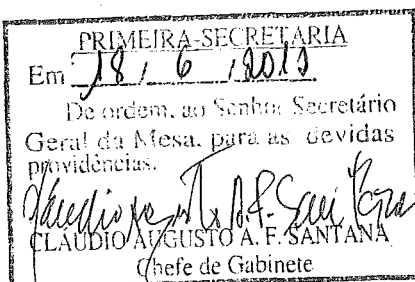 PRIMEIRA-SECRETARIA
Em 18, 6, 2013
De ordem, ao Senhor Secretário
Geral da Mesa, para as devidas
providências.
CLAUDIO AUGUSTO A. F. SANTANA
Chefe de Gabinete